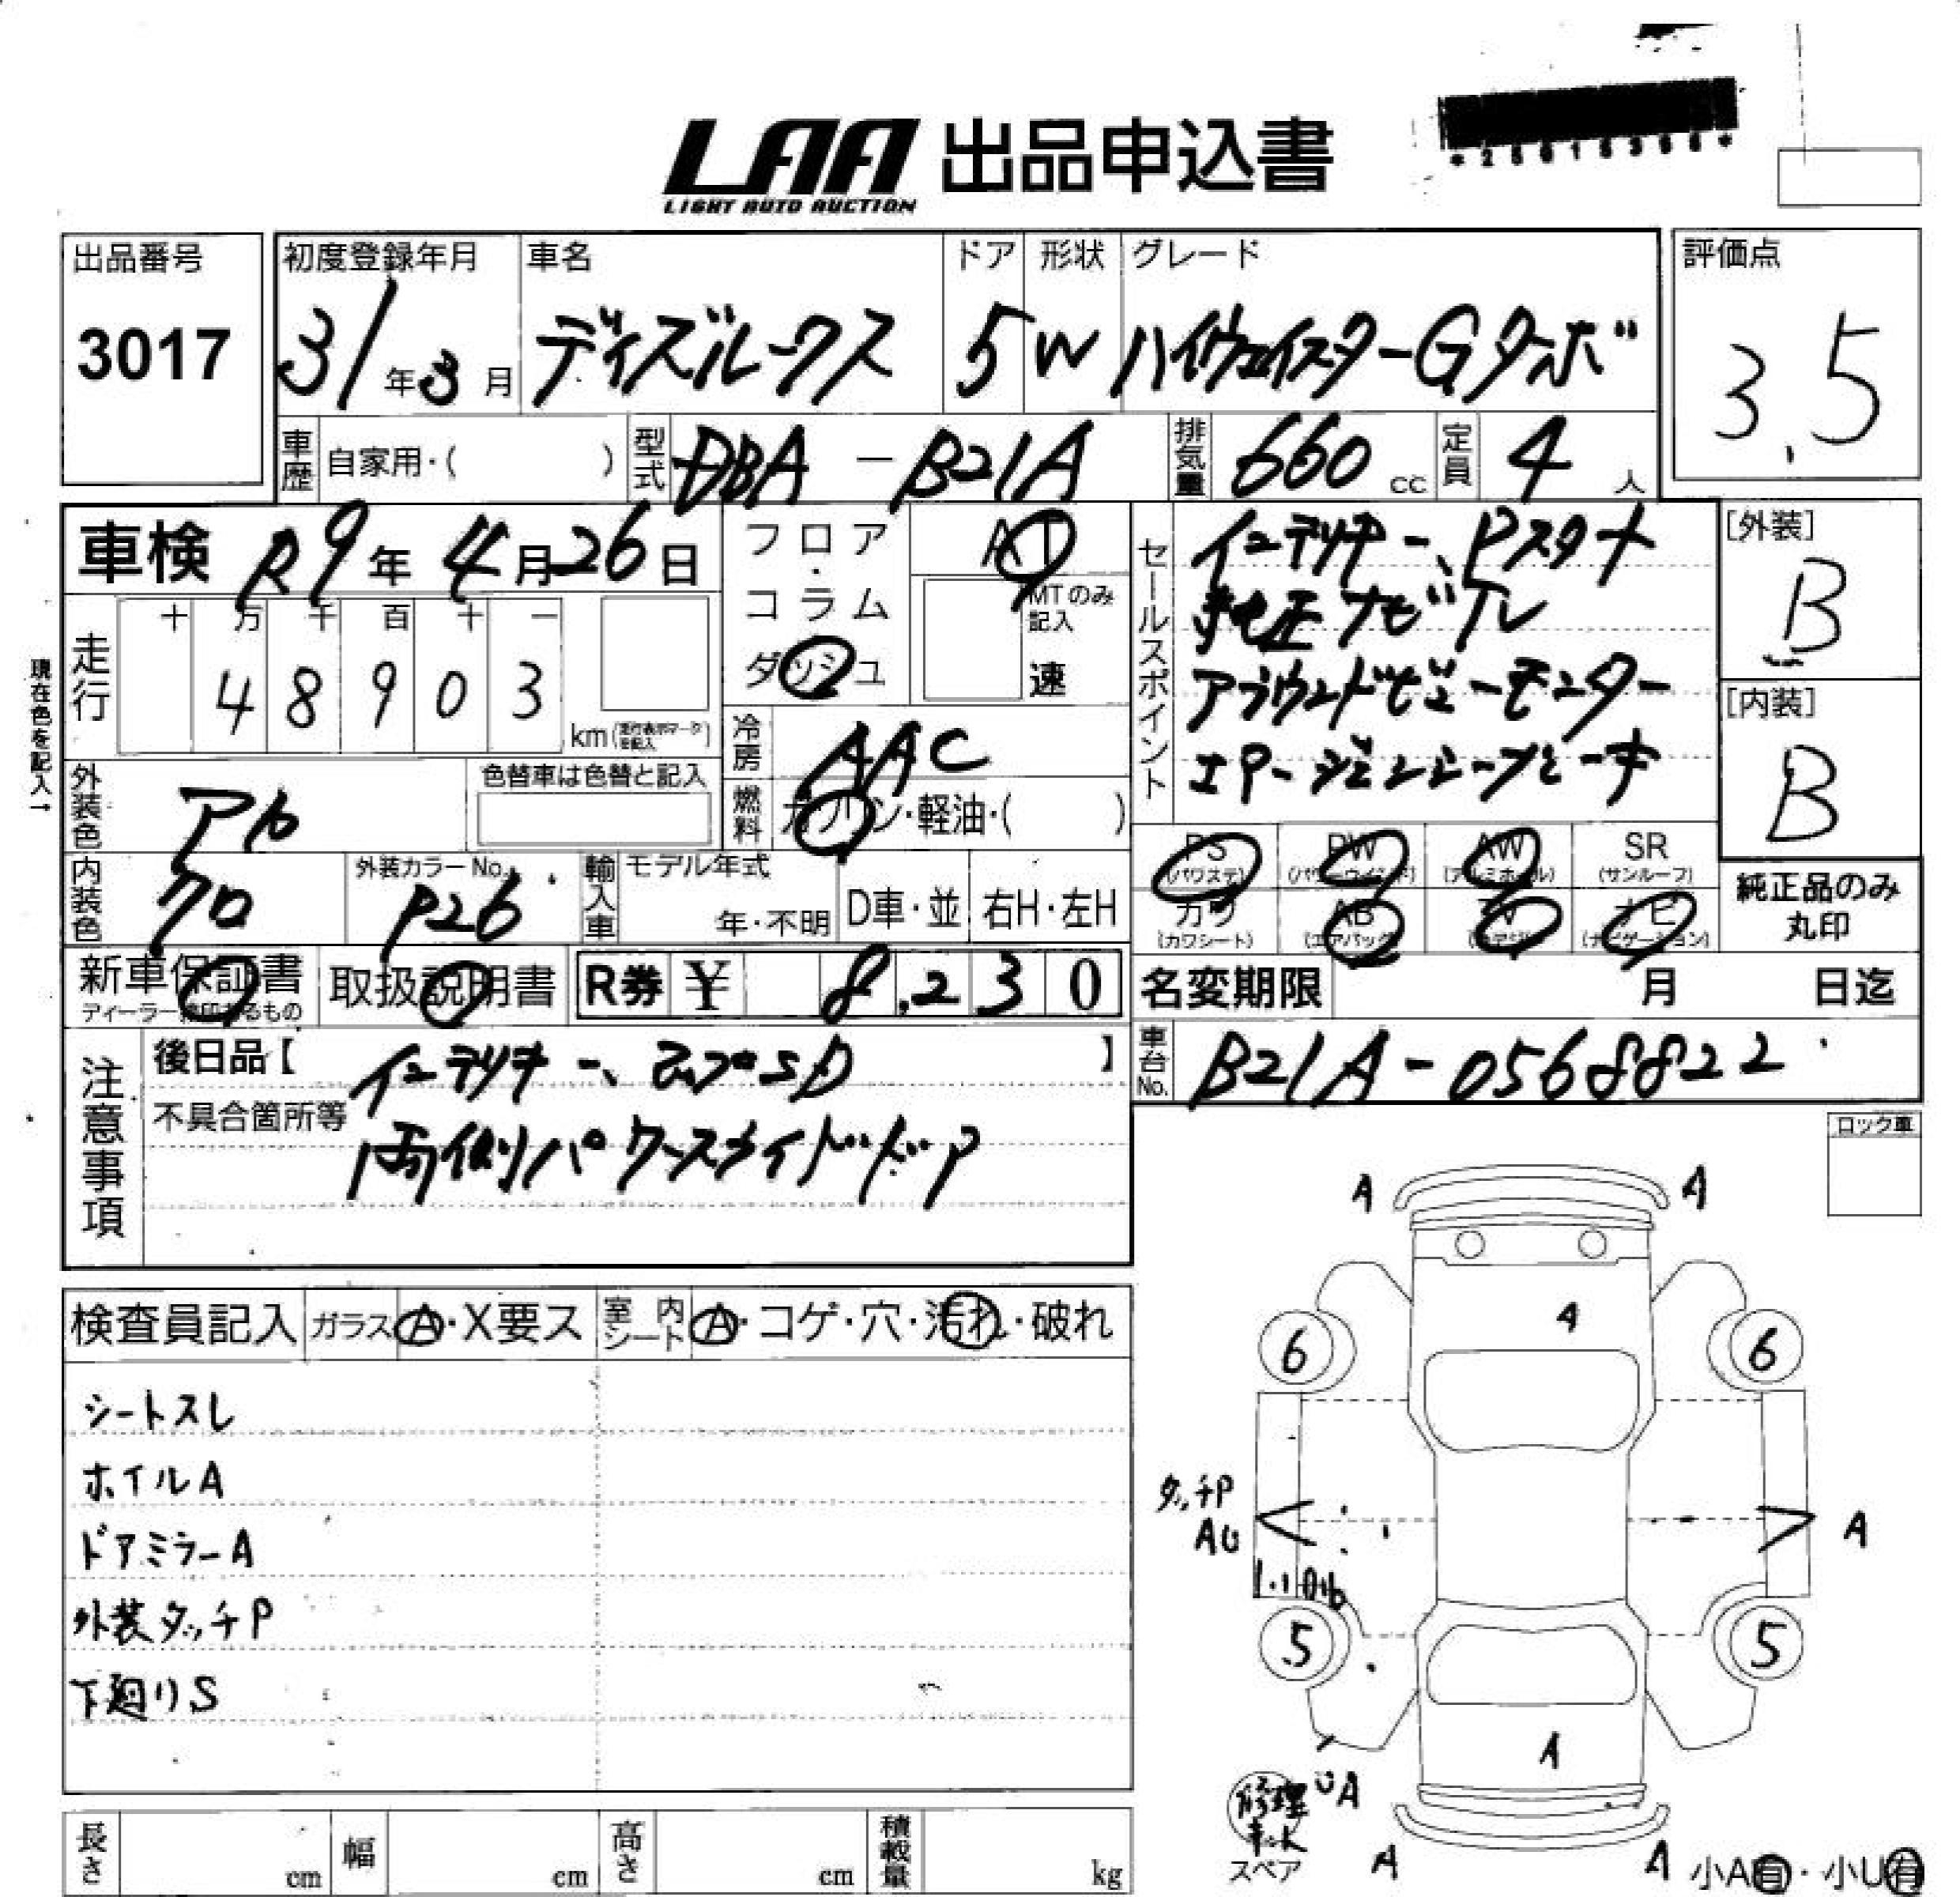 LAA 出品申込書
LIGHT AUTO AUCTION
出品番号
3017
初度登録年月
31年3月
車名
デイズルークス
ドア
5
形状
W
グレード
ハイウェイスターGターボ
評価点
3.5
車歴 自家用・( )
型式 DBA - B21A
排気量 660 cc
定員 4 人
車検 R9年4月26日
フロア・コラム
ダッシュ
AT
MTのみ記入
速
セールスポイント
インテリキー、Pスタート
純正ナビTV
アラウンドビューモニター
エマージェンシーブレーキ
[外装]
B
[内装]
B
現在色を記入→
走行
十 万 千 百 十 一
4 8 9 0 3
km
冷房 AAC
燃料 ガソリン・軽油・( )
外装色
色替車は色替と記入
内装色 クロ
外装カラーNo.
P26
輸入車
モデル年式
年・不明
D車・並
右H・左H
PS (パワステ)
PW (パワーウインド)
AW (アルミホイール)
SR (サンルーフ)
カワ (カワシート)
AB (エアバッグ)
TV
ナビ (ナビゲーション)
純正品のみ丸印
新車保証書
取扱説明書
R券 ¥ 8,230
名変期限 月 日迄
注意事項
後日品【 】
インテリキー、マップSD
不具合箇所等
両側パワースライドドア
車台No. B21A-0568822
ロック車
検査員記入
ガラス A・X要ス
室内シート A・コゲ・穴・汚れ・破れ
シートスレ
ホイルA
ドアミラーA
外装タッチP
下廻りS
A A
A
6 6
タッチP
AU
A
5 5
A
UA
修理キット
スペア
A A
小A有・小U有
長さ cm
幅 cm
高さ cm
積載量 kg